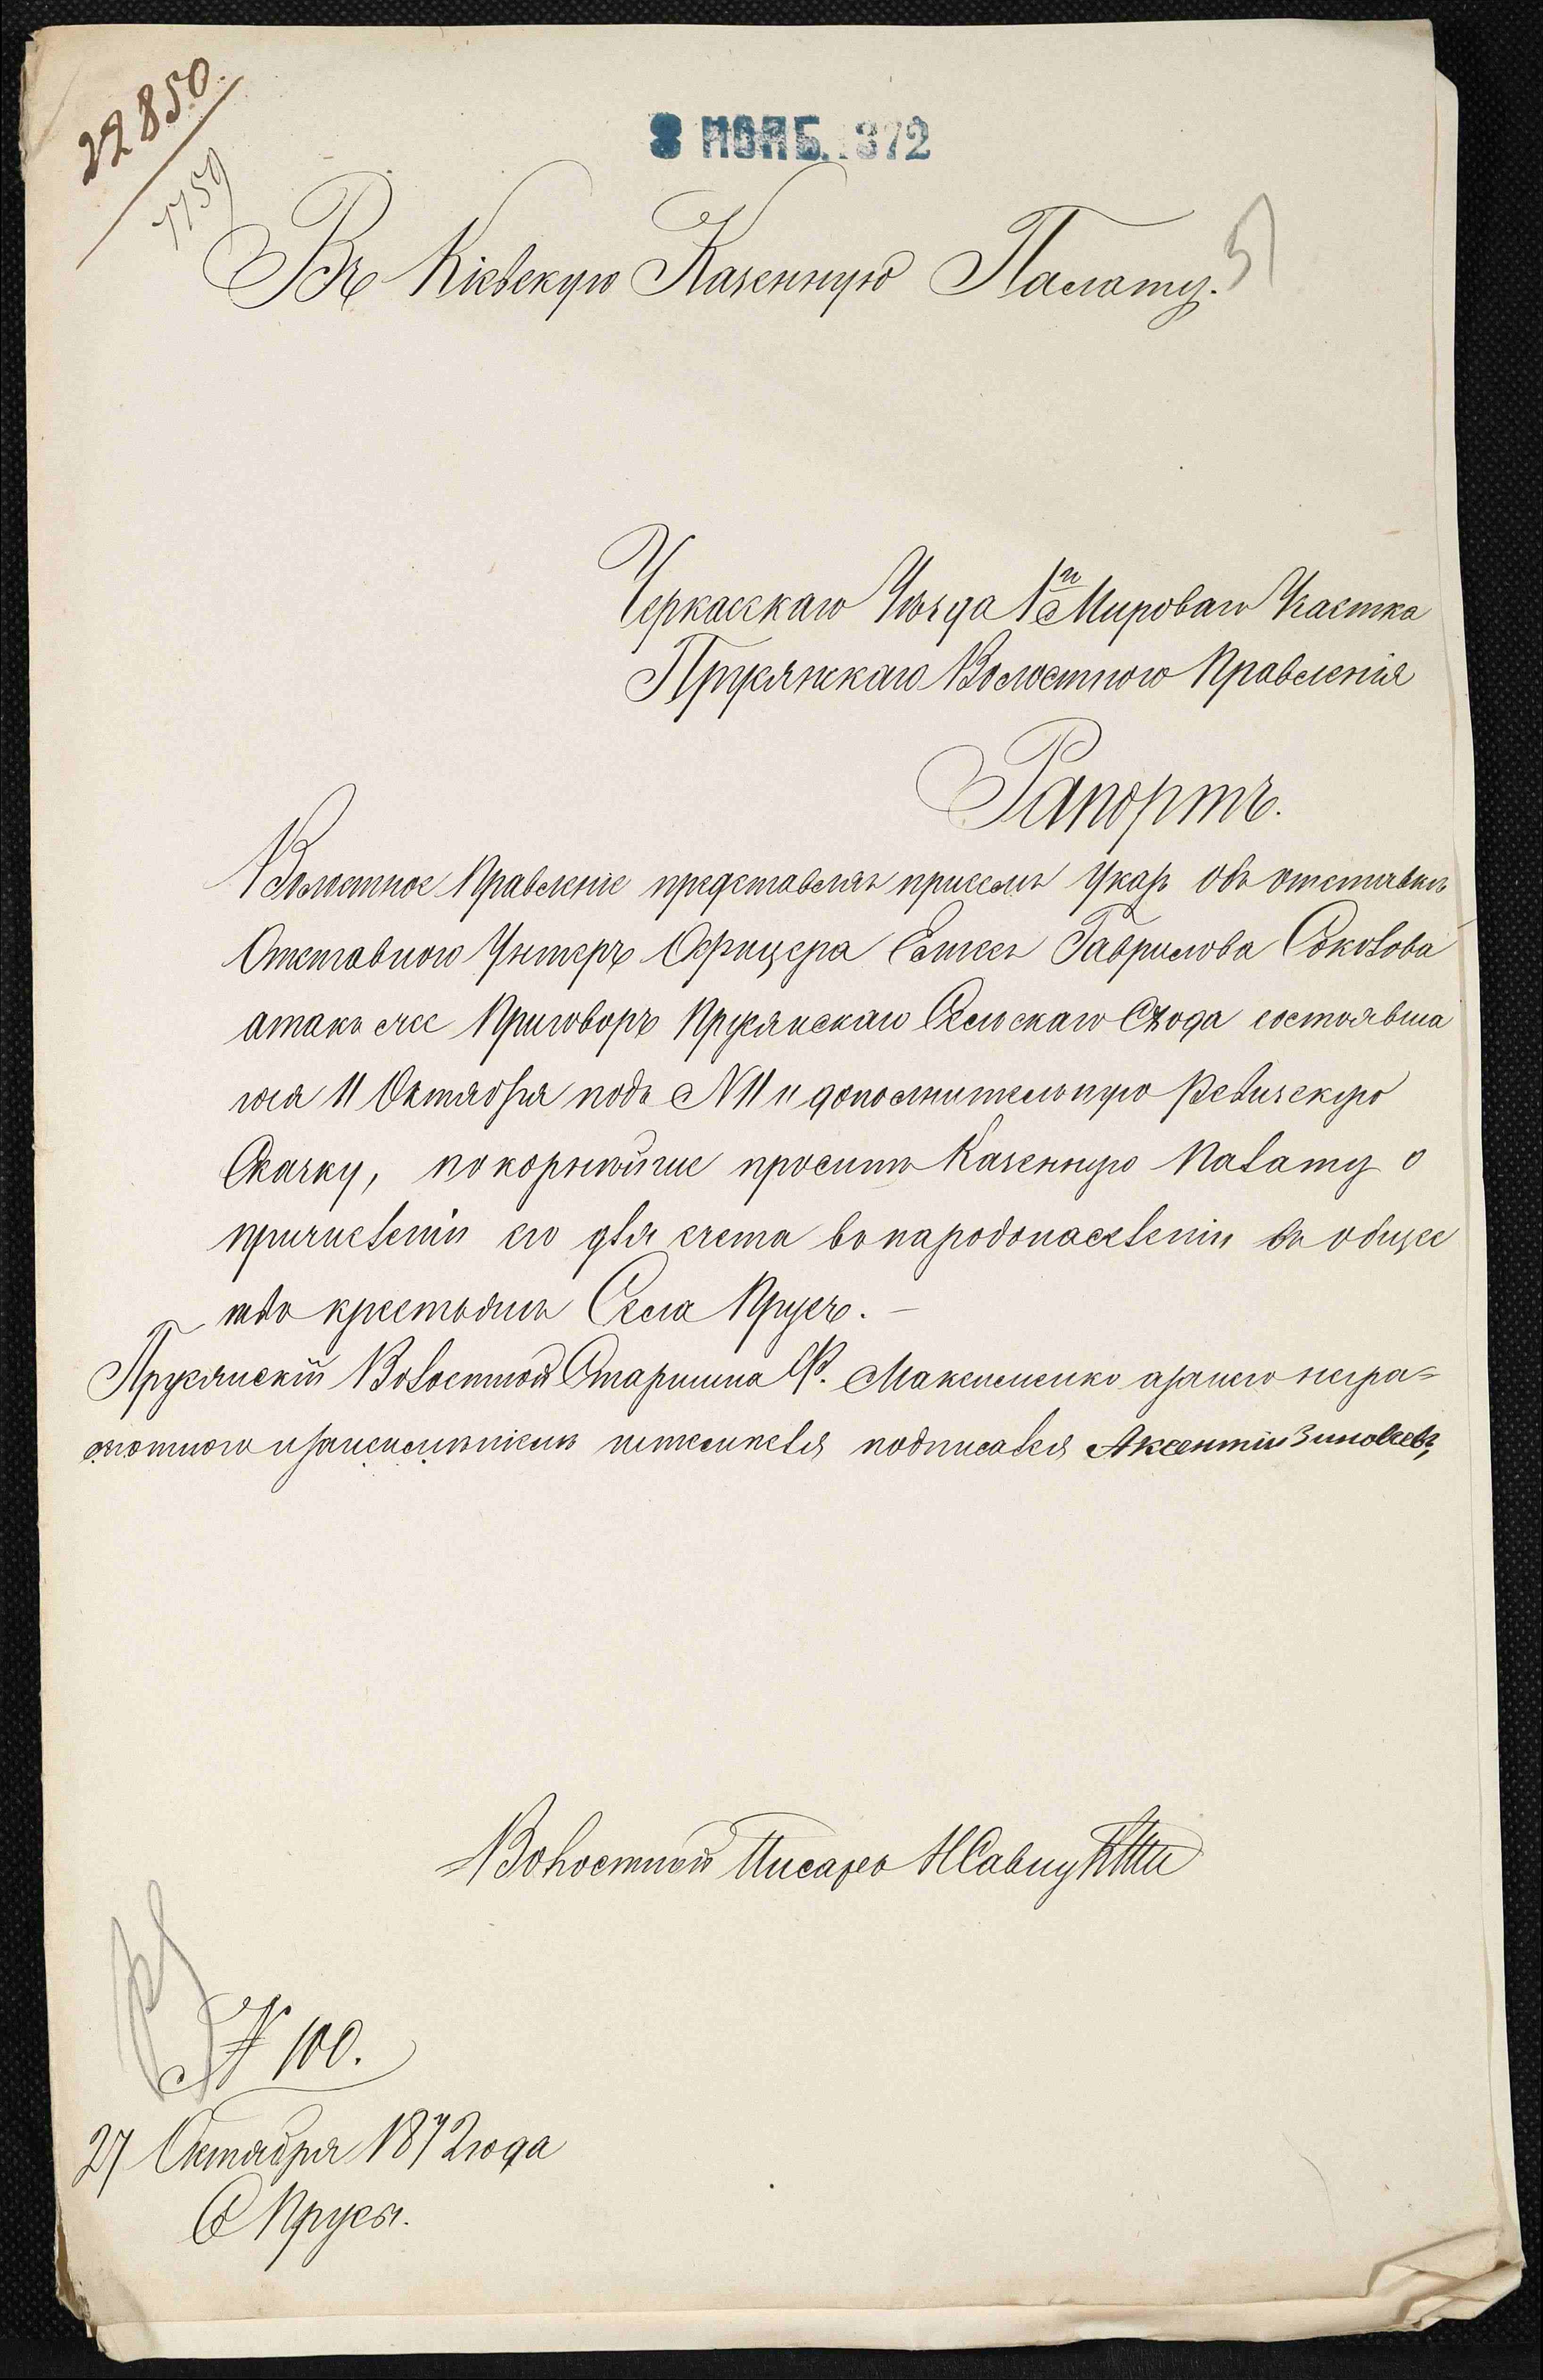 22850.
1159
8 НОЯБ. 1872
Въ Кіевскую Казенную Палату.
5
Черкасскаго Уѣзда 1го Мироваго Участка
Прусянскаго Волостного Правленія
Рапортъ.
Волостное Правленіе представляя присемъ Указъ объ отставкѣ
Отставного Унтеръ Офицера Гаврилова Соколова
атакъ же Приговоръ Прусянскаго Сельскаго Схода состоявша
гося 11 Октября подъ № 11 и дополнительную Ревизскую
Сказку, покорнѣйше проситъ Казенную Палату о
причисленіи его для счета во народонаселеніи въ общес
тво крестьянъ Села Прусъ. —
Прусянскій Волостной Старшина Максименко азанего негра=
мотного подписался Аксентій Зиновьевъ
Волостной Писарь НСавиц
№ 100.
27 Октября 1872 года
С Прусы.